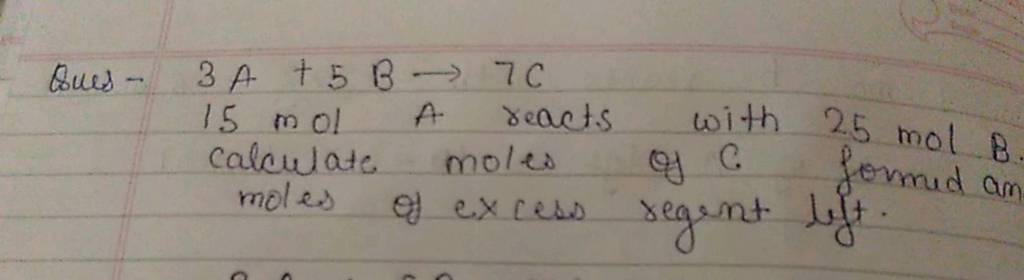 Ques - 3 A + 5 B → 7 C
15 mol A reacts with 25 mol B.
calculate moles of C formed an
moles of excess regent left.